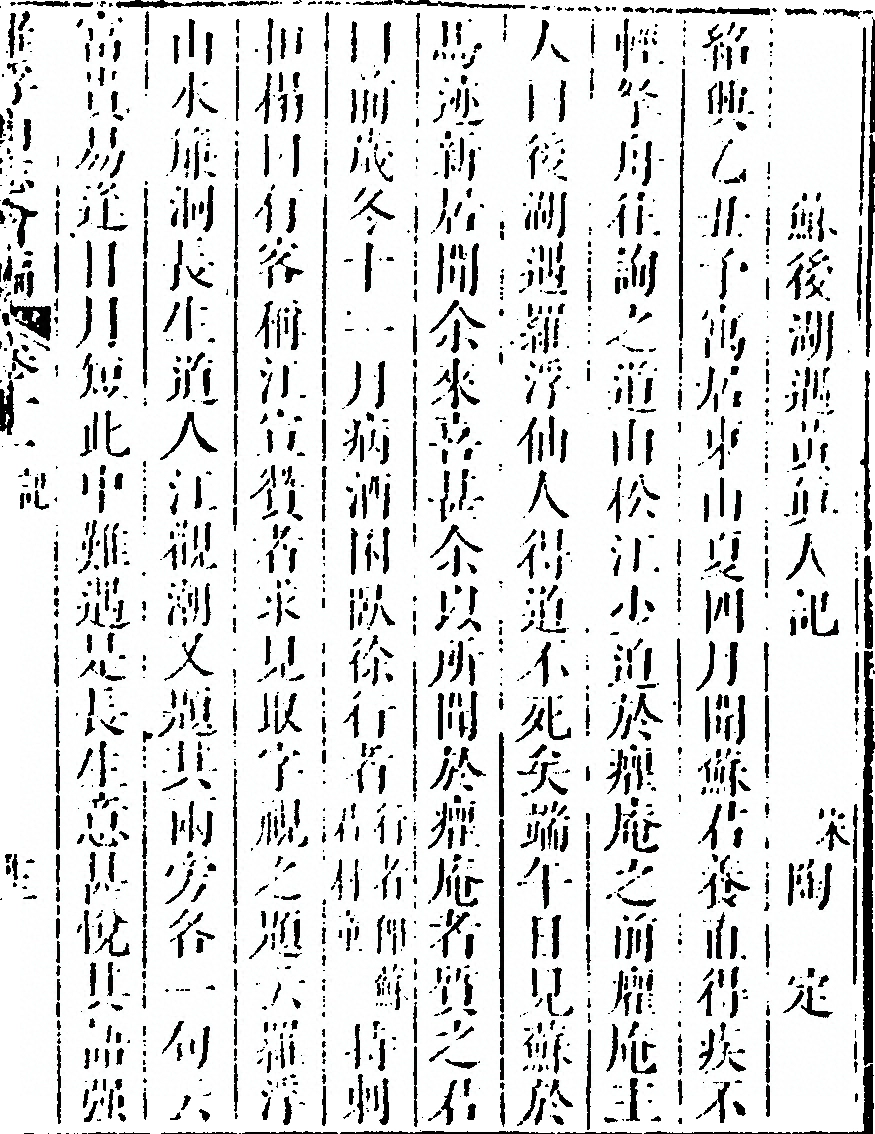 蘇後湖遇黃真人記
宋 陶 定
紹興乙丑予寓居東山夏四月聞蘇君養直得疾不
輕拏舟往詢之道由松江少迫於癯庵之前癯庵主
人曰後湖遇羅浮仙人得道不死矣端午日見蘇於
馬迹新居聞余來喜甚余以所聞於癯庵者質之君
曰前歲冬十一月病酒困臥徐行者行者即蘇君村童持刺
扣榻曰有客稱江宣贊者求見取字視之題云羅浮
山水簾洞長生道人江觀潮又題其兩旁各一句云
富貴易逢日月短此中難遇是長生意甚悅其語強
記